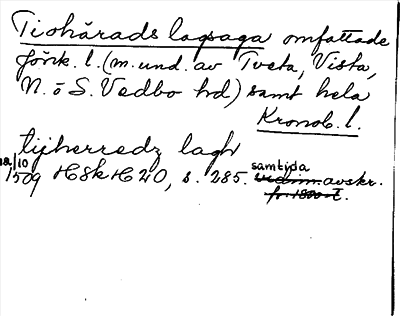 Tiohärads lagsaga omfattade
Jönk. l. (m. und. av Tveta, Vista,
N. o S. Vedbo hd) samt hela
Kronob. l.
tijherredz lagh
18/10 1509 HSH 20, s. 285. samtida avskr.